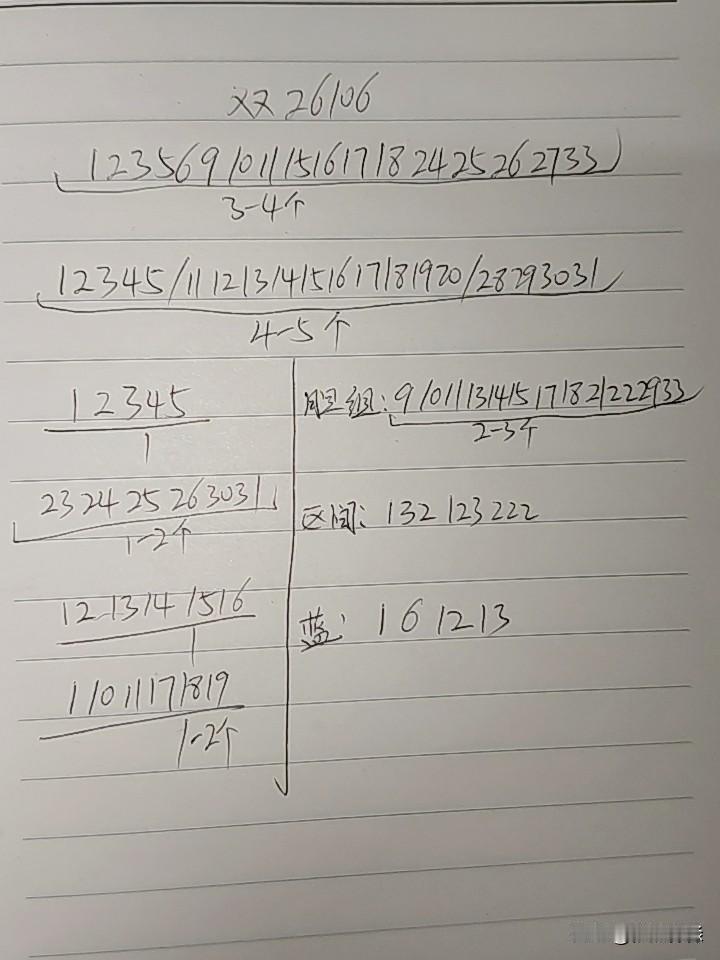 双 26106
1 2 3 5 6 9 10 11 15 16 17 18 24 25 26 27 33
3-4个
1 2 3 4 5/11 12 13 14 15 16 17 18 19 20/28 29 30 31
4-5个
1 2 3 4 5
1
23 24 25 26 30 31
1-2个
12 13 14 15 16
1
1 10 11 17 18 19
1-2个
胆组:9 10 11 13 14 15 17 18 21 22 29 33
2-3个
区间:132 123 222
蓝:1 6 12 13